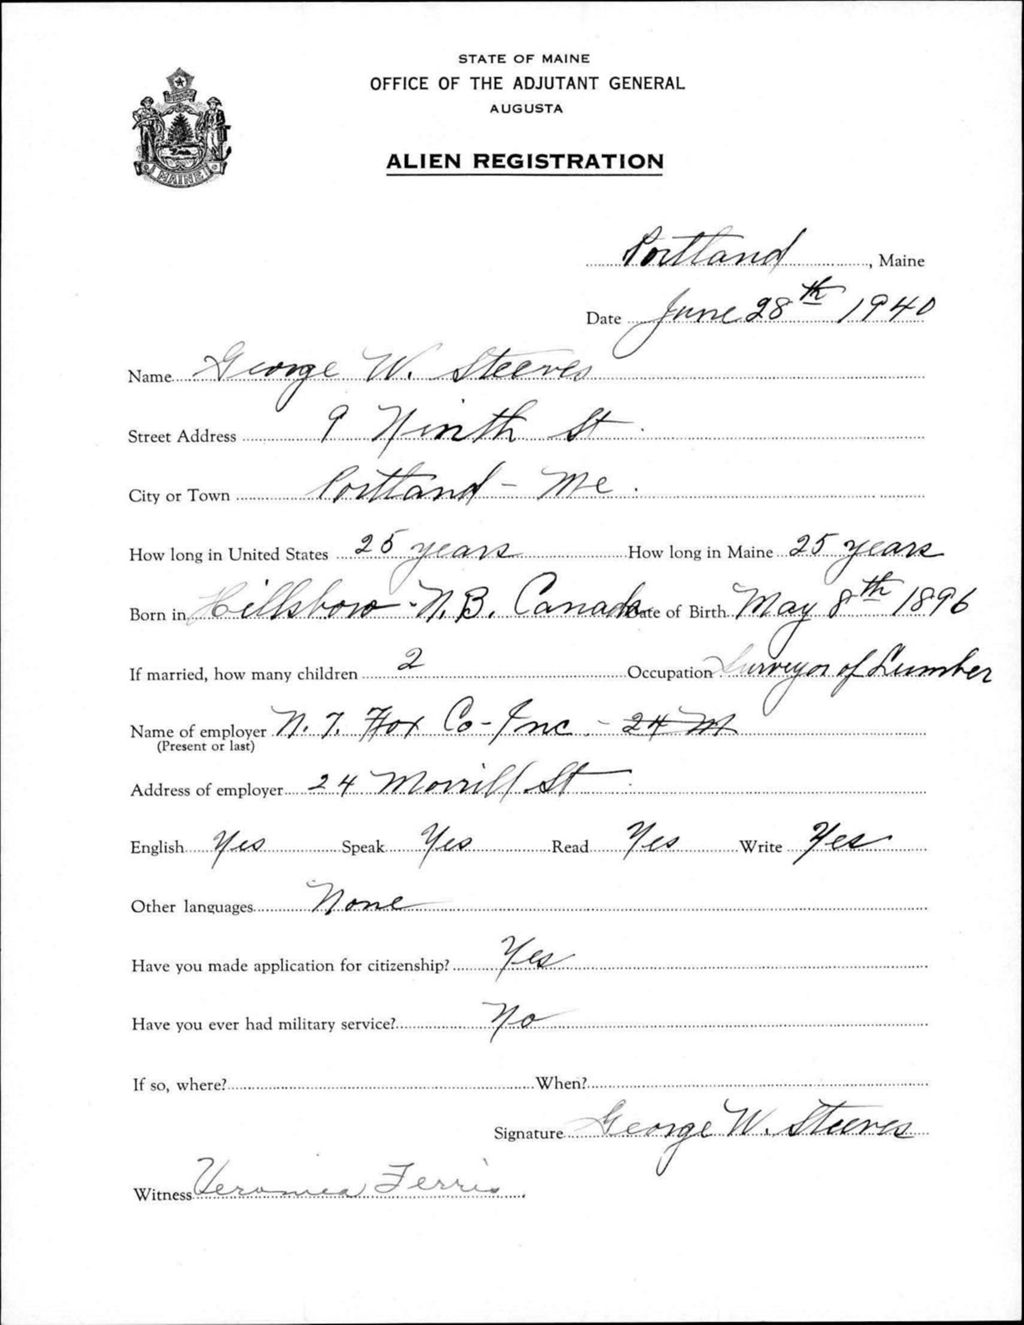 STATE OF MAINE
OFFICE OF THE ADJUTANT GENERAL
AUGUSTA
ALIEN REGISTRATION
MAINE
Portland, Maine
Date June 28th 1940
Name George W. Steeves
Street Address 9 Ninth St.
City or Town Portland - Me.
How long in United States 25 years How long in Maine 25 years
Born in Hillsboro - N.B. Canada Date of Birth May 8th 1896
If married, how many children 2 Occupation Surveyor of Lumber
Name of employer N. T. Fox Co - Inc. - 24 M
(Present or last)
Address of employer 24 Morrill St.
English Yes Speak Yes Read Yes Write Yes
Other languages None
Have you made application for citizenship? Yes
Have you ever had military service? No
If so, where? When?
Signature George W. Steeves
Witness Veronica Ferris